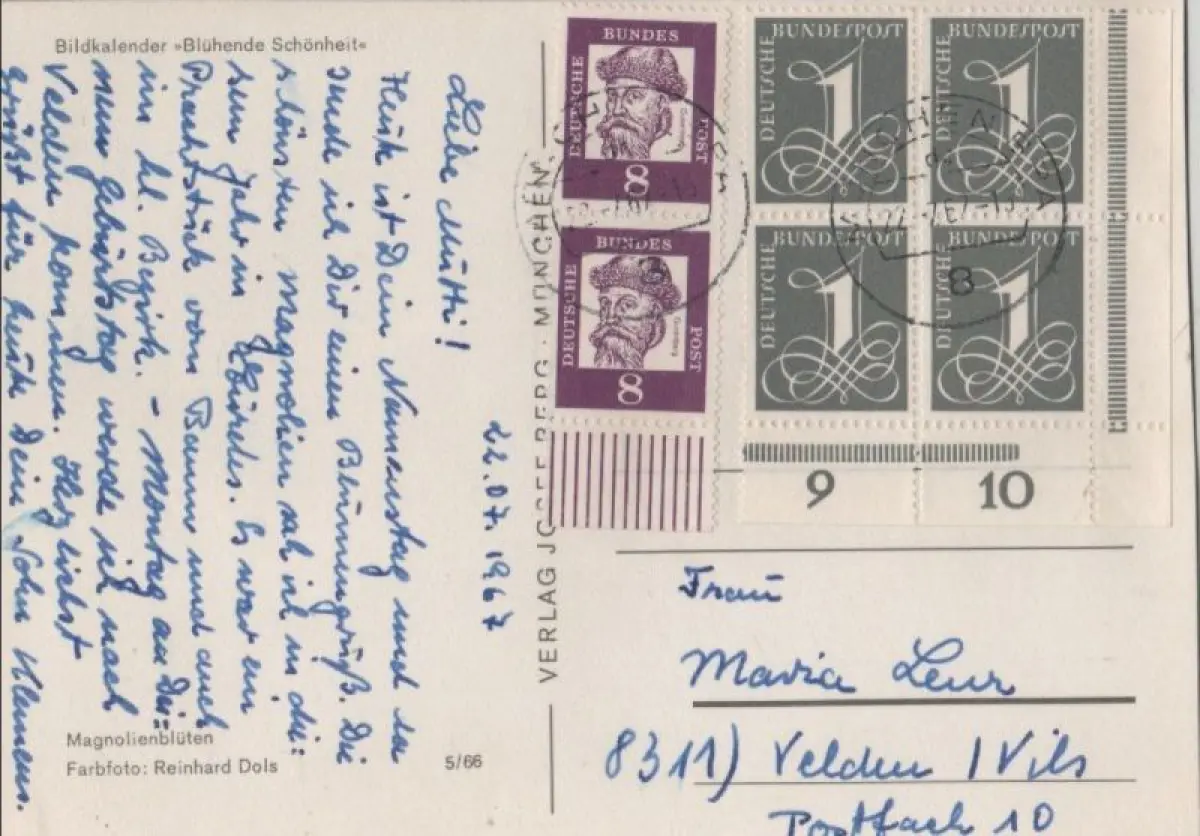 Bildkalender »Blühende Schönheit«
22.07.1967
Liebe Mutti!
Heute ist Dein Namenstag und da
sende ich Dir einen Blumengruß. Die
schönsten Magnolien sah ich in die:
sem Jahr in Es war ein
Prachtstück von Baum und auch
im bl. - Montag an Dei=
nem Geburtstag werde ich nach
Velden kommen. Herzlichst
grüßt für heute Dein Sohn Klemens.
Magnolienblüten
Farbfoto: Reinhard Dols
5/66
VERLAG BERG · MÜNCHEN
BUNDES
DEUTSCHE
POST
Gutenberg
8
BUNDES
DEUTSCHE
POST
Gutenberg
8
DEUTSCHE BUNDESPOST
1
DEUTSCHE BUNDESPOST
1
DEUTSCHE BUNDESPOST
1
DEUTSCHE BUNDESPOST
1
8
9
10
Frau
Maria Lenz
8311) Velden / Vils
Postfach 10